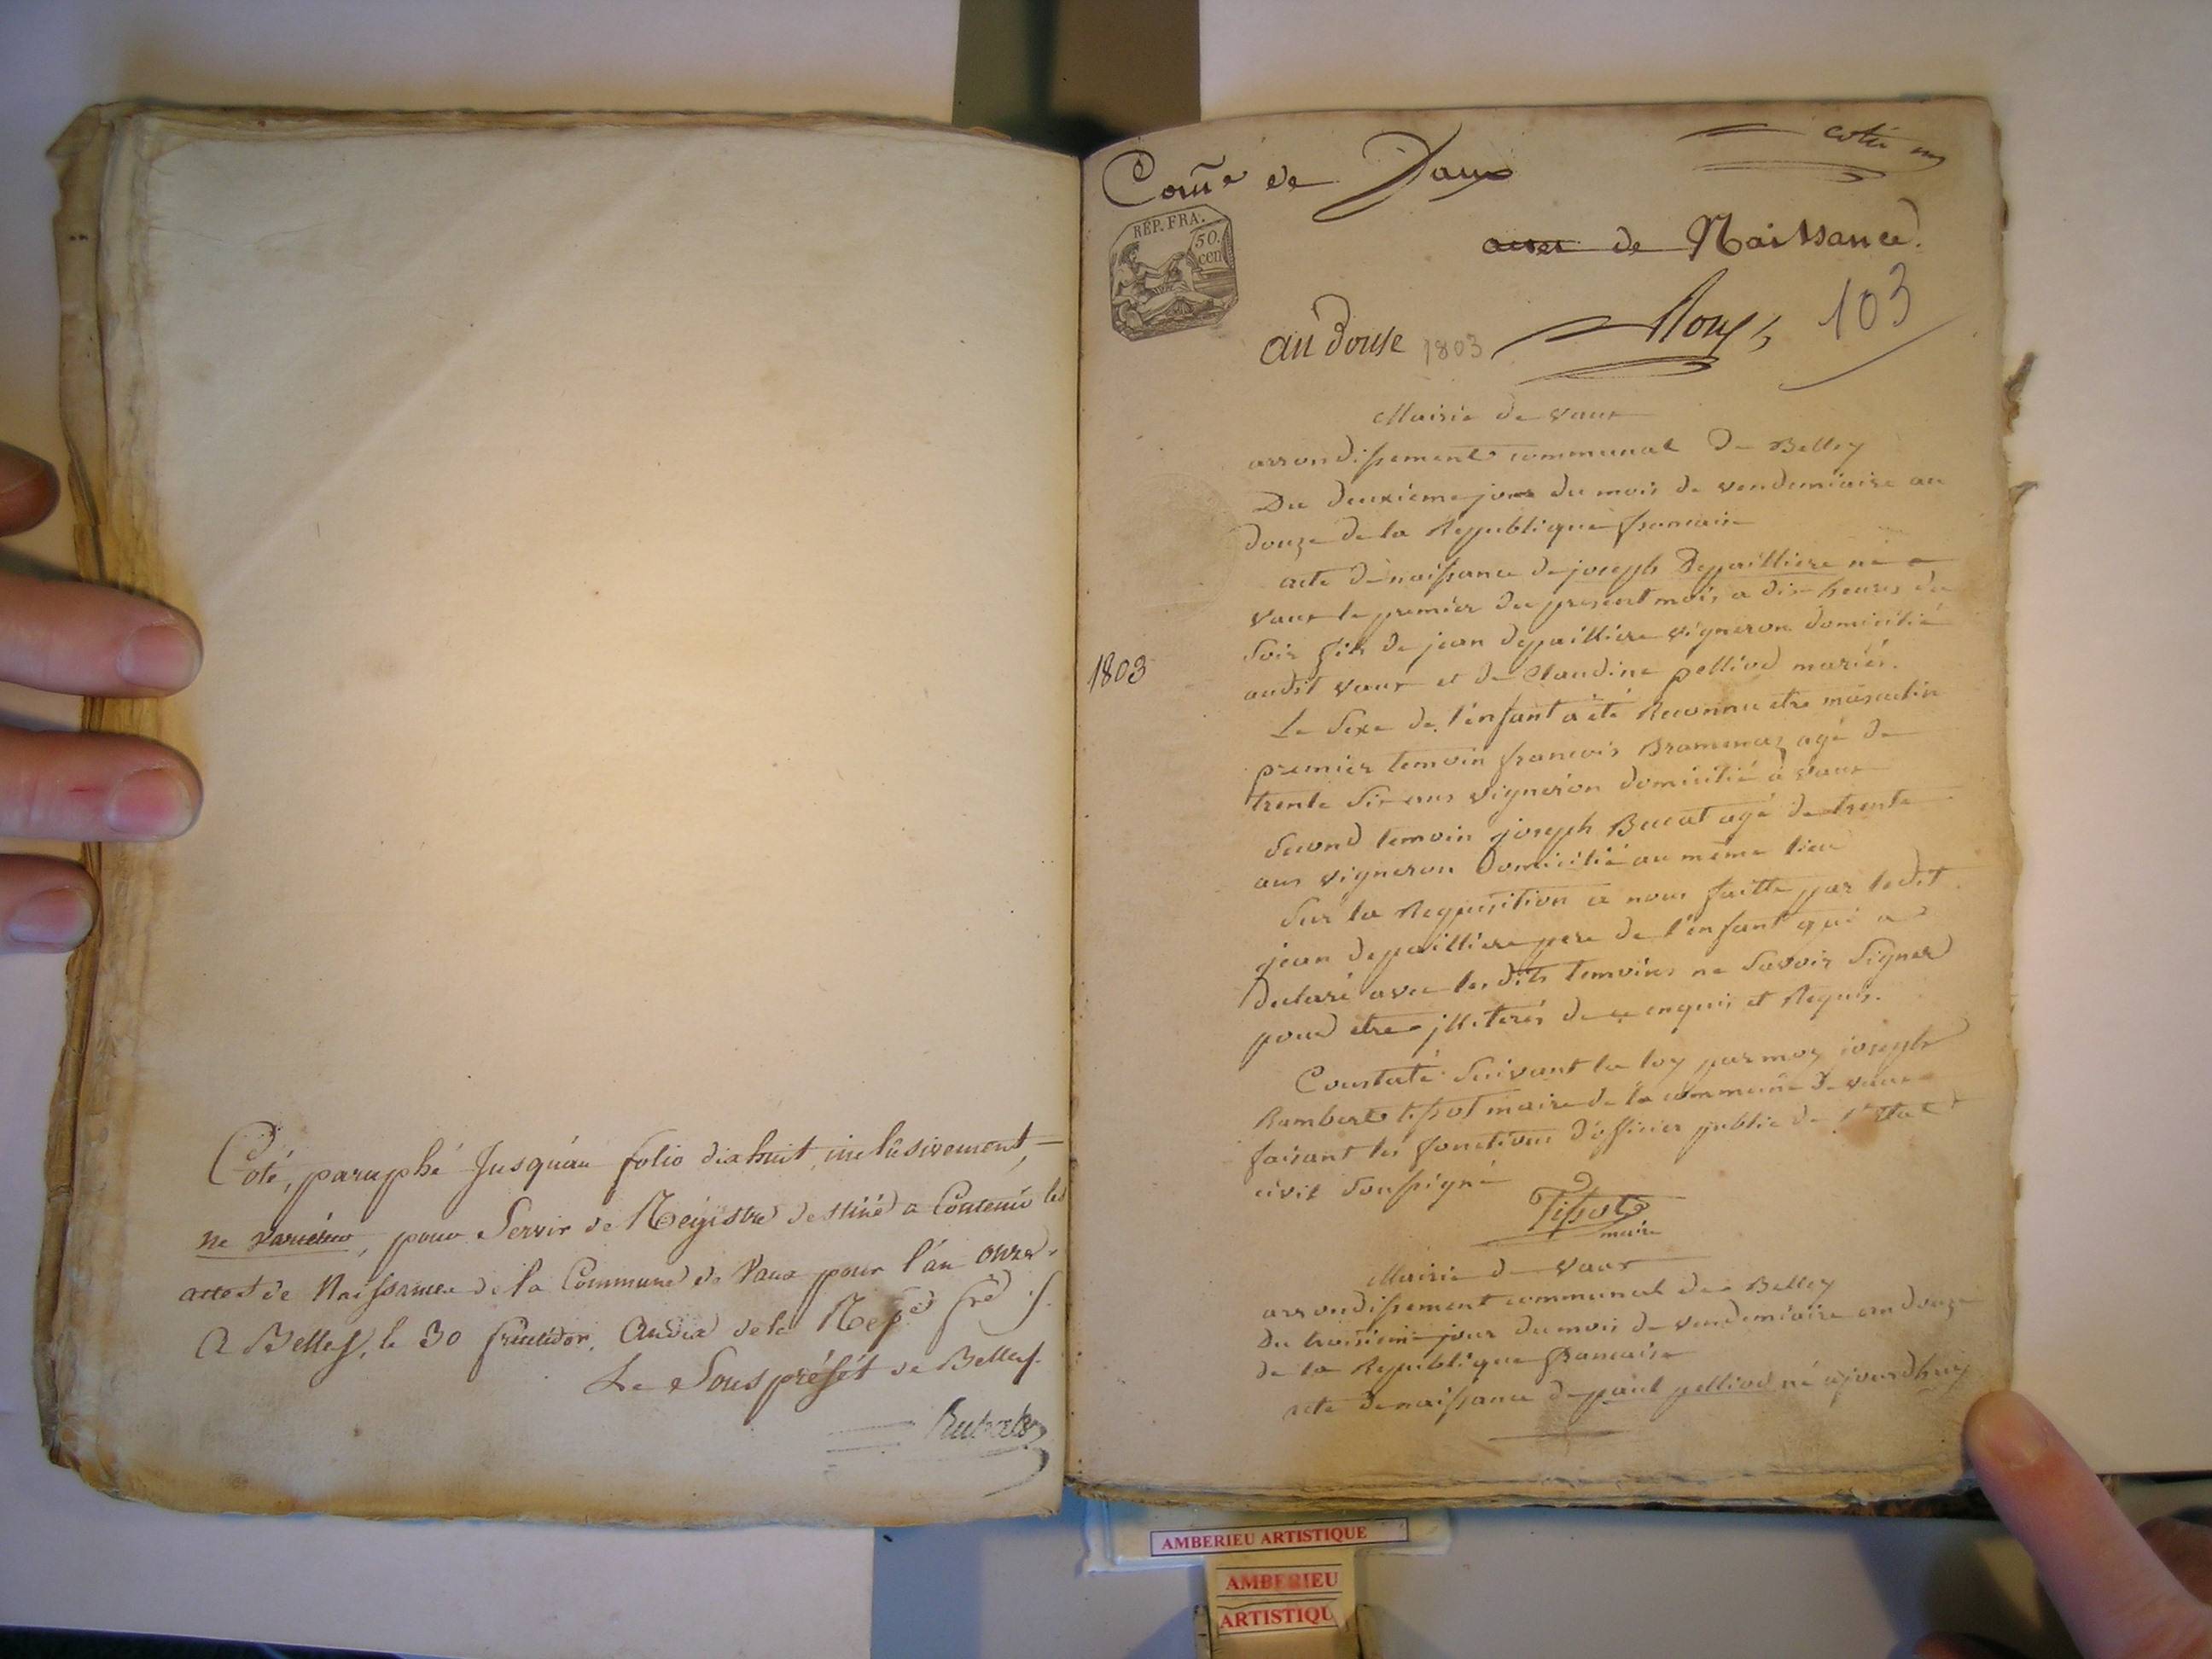 Coté, paraphé Jusqu'au folio dixhuit, inclusivement,
ne varietur, pour Servir de Registre destiné a Contenir les
actes de Naissance de la Commune de Vaux pour l'an onze
A Belley, le 30 fructidor, an dix de la Rep.e fr.e
Le Sous préfét de Belley.
Com.ne de Vaux
RÉP. FRA.
50.
cen
de Naissance.
an Douse 1803
103
Mairie de vaux
arrondissement communal De Belley
Du deuxieme jour du mois de vendemiaire an
douze de la Republique francaise
acte de naissance de joseph Depailliere né a
vaux le premier du present mois a dix heures du
soir fils de jean depailliere vigneron domicilié
audit vaux et de Claudine pelliod mariés.
1803
Le sexe de l'enfant a été Reconnu etre masculin
premier temoin francois Bramenaz agé de
trente six ans vigneron domicilié a vaux
second temoin joseph Bucat agé de trente
ans vigneron Domicilié au même lieu
sur la Requisition a nous faitte par ledit
jean depailliere pere de l'enfant qui a
declaré avec lesdits temoins ne savoir signer
pour etre jlliterés de ce enquis et Requis.
Constaté suivant la loy par moy joseph
Rambert tissot maire de la commune de vaux
faisant les fonctions d'officier public de l'Etat
civil soussigné
Tissot
maire
Mairie de vaux
arrondissement communal de Belley
Du troisieme jour du mois de vendemiaire an douze
de la Republique francaise
acte de naissance de paul pelliod né ajourdhuy
AMBERIEU ARTISTIQUE
AMBERIEU
ARTISTIQU